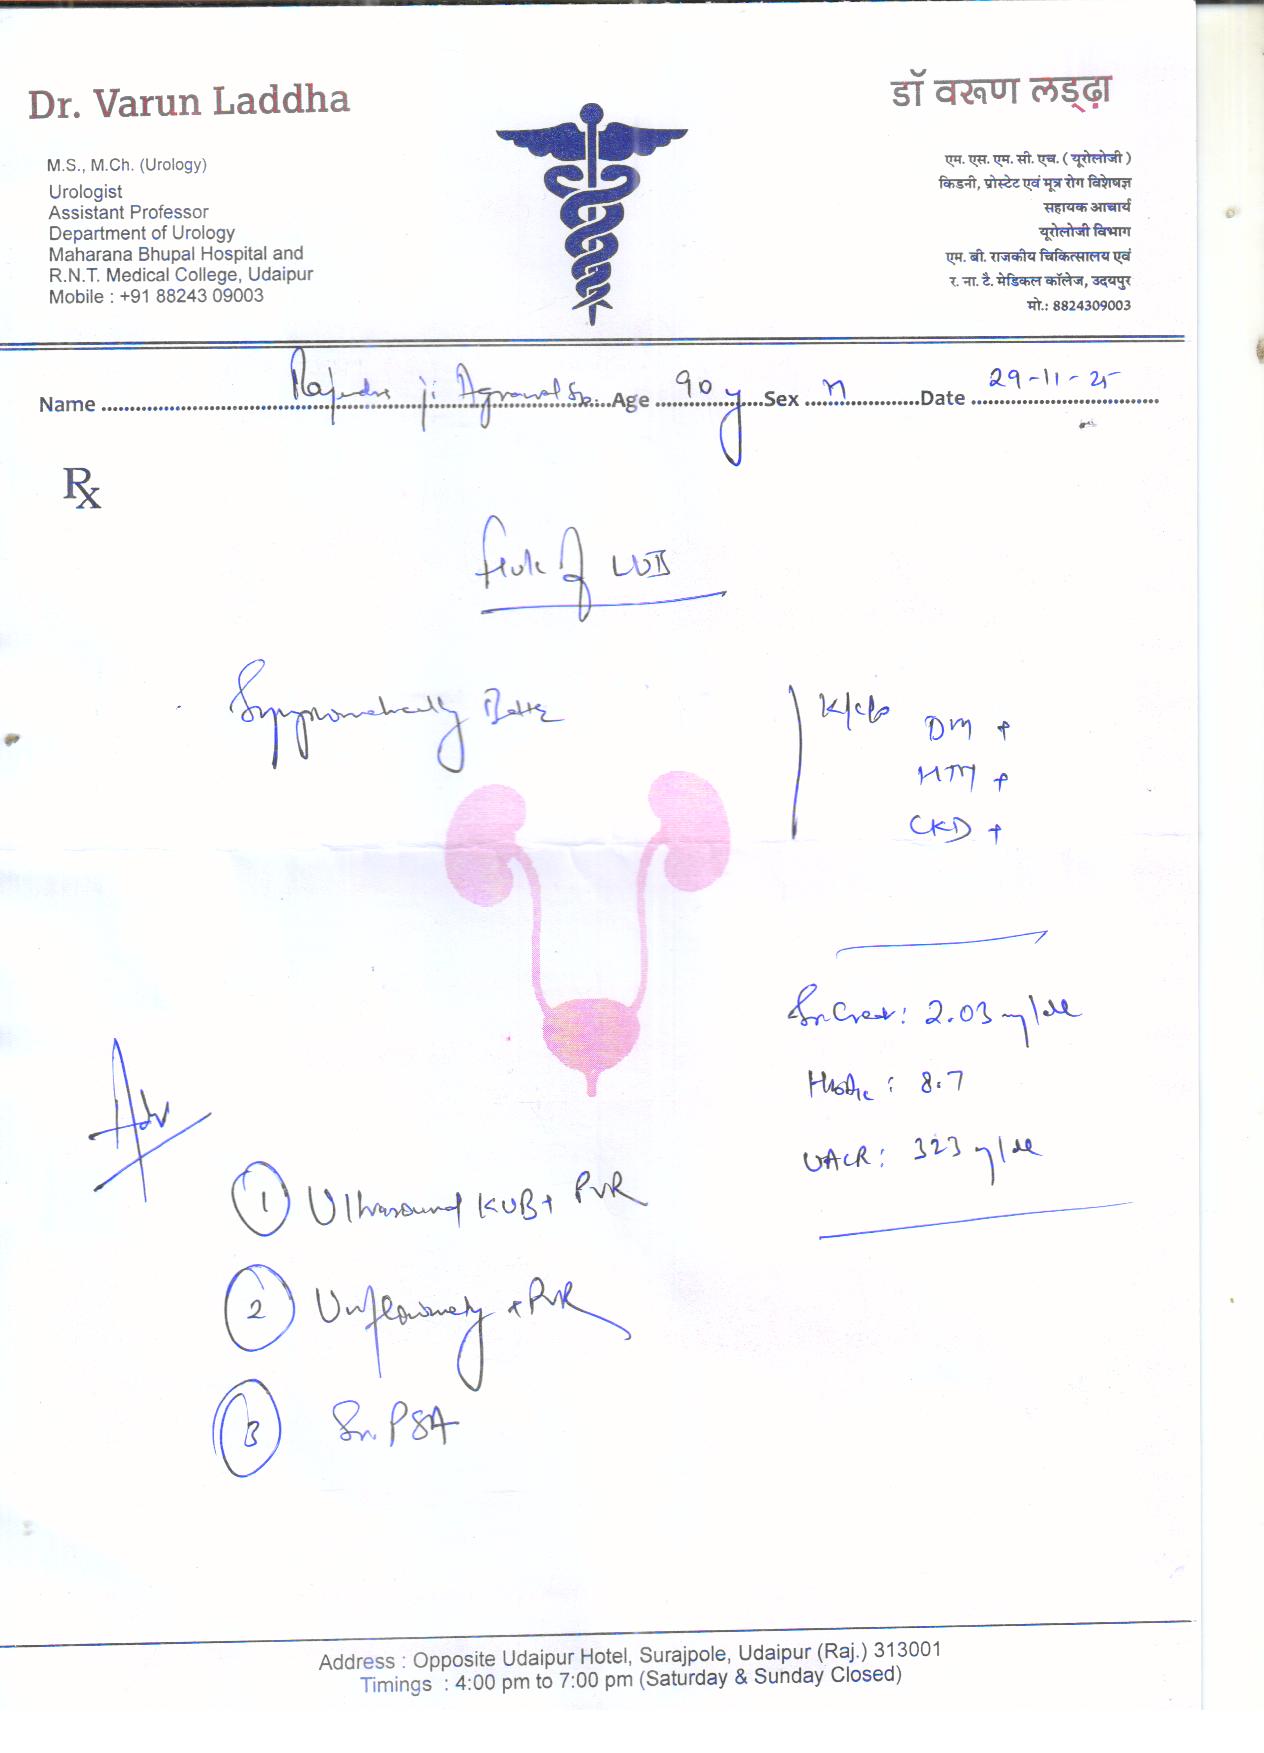 Dr. Varun Laddha
M.S., M.Ch. (Urology)
Urologist
Assistant Professor
Department of Urology
Maharana Bhupal Hospital and
R.N.T. Medical College, Udaipur
Mobile : +91 88243 09003
डॉ वरूण लड्ढ़ा
एम. एस. एम. सी. एच. ( यूरोलोजी )
किडनी, प्रोस्टेट एवं मूत्र रोग विशेषज्ञ
सहायक आचार्य
यूरोलोजी विभाग
एम. बी. राजकीय चिकित्सालय एवं
र. ना. टै. मेडिकल कॉलेज, उदयपुर
मो.: 8824309003
Name Rajendra ji Agrawal Sb. Age 90 y Sex M Date 29-11-25
Rx
of
Symptomatically Better
K/c/o
DM +
HTN +
CKD +
Sr. Creat: 2.03 mg/dl
HbA1c : 8.7
UACR: 323 mg/dl
Adv
1 Ultrasound KUB + PVR
2 Uroflowmetry + PVR
3 Sr. PSA
Address : Opposite Udaipur Hotel, Surajpole, Udaipur (Raj.) 313001
Timings : 4:00 pm to 7:00 pm (Saturday & Sunday Closed)